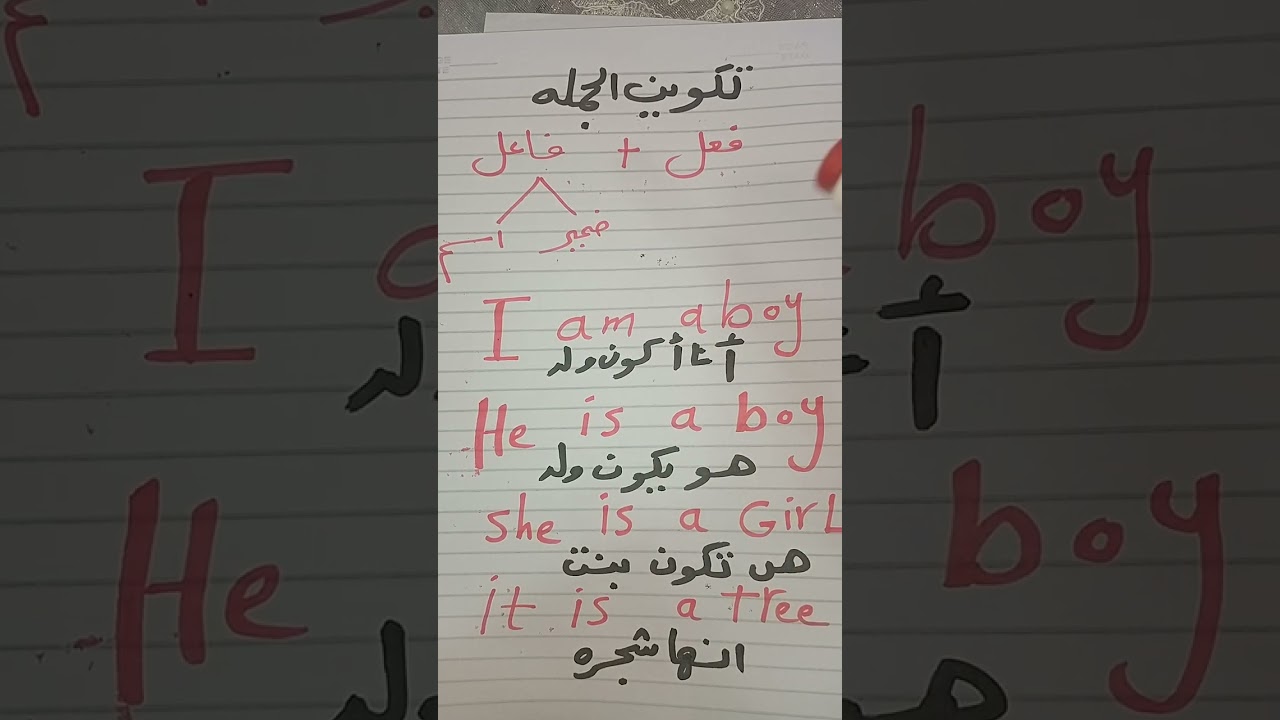 تكوين الجمله
فعل + فاعل
ضمير اسم
I am a boy
أنا أكون ولد
He is a boy
هو يكون ولد
she is a GirL
هى تكون بنت
it is a tree
انها شجره